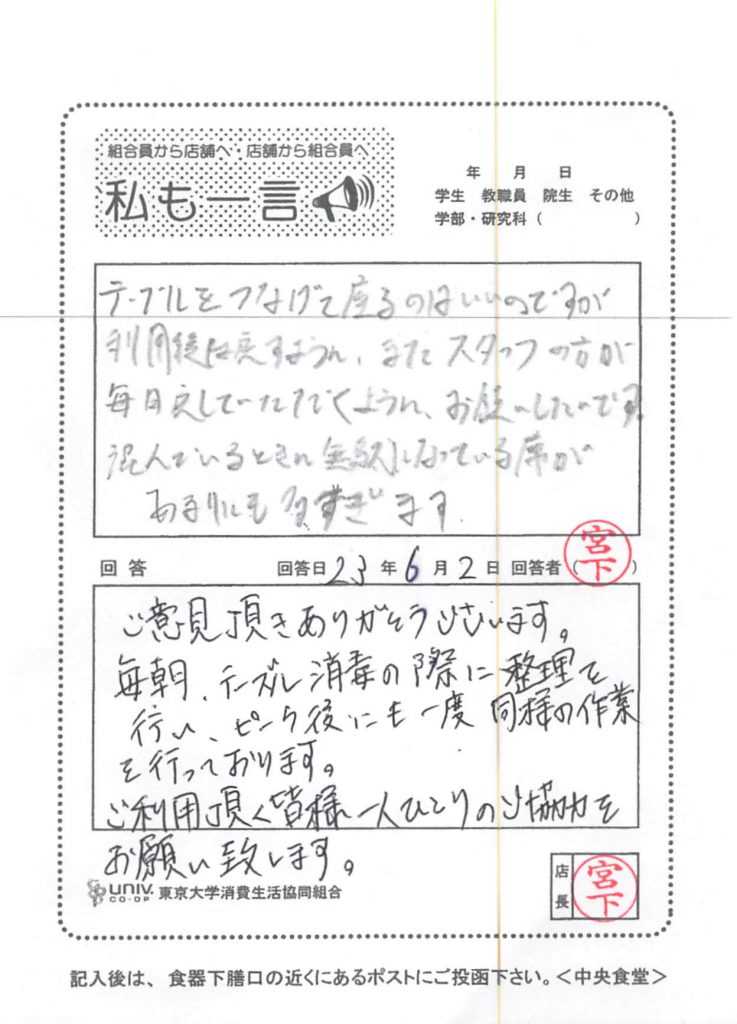 組合員から店舗へ・店舗から組合員へ
私も一言
年 月 日
学生 教職員 院生 その他
学部・研究科（ ）
テーブルをつなげて座るのはいいのですが
利用後は戻すように、またスタッフの方が
毎日戻していただくように、お願いしたいです。
混んでいるときに無駄になっている席が
あまりにも多すぎます。
回答 回答日 23 年 6 月 2 日 回答者（宮下）
ご意見頂きありがとうございます。
毎朝、テーブル消毒の際に整理を
行い、ピーク後にも一度同様の作業
を行っております。
ご利用頂く皆様一人ひとりのご協力を
お願い致します。
UNIV. CO-OP 東京大学消費生活協同組合
店長 宮下
記入後は、食器下膳口の近くにあるポストにご投函下さい。＜中央食堂＞